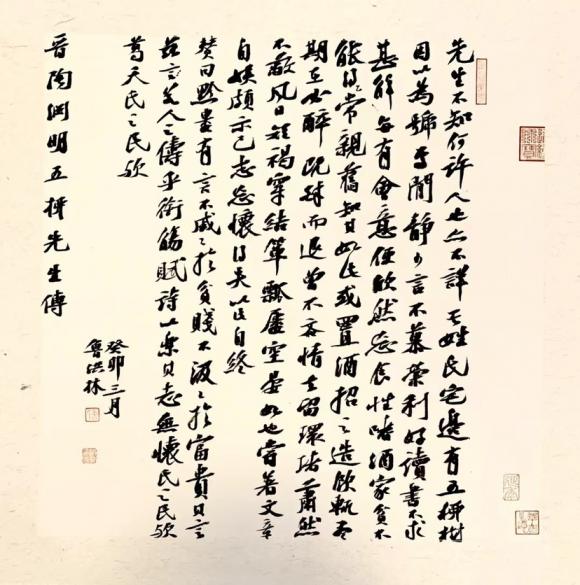 先生不知何許人也亦不詳其姓氏宅邊有五柳樹
因以為號焉閒靜少言不慕榮利好讀書不求
甚解每有會意便欣然忘食性嗜酒家貧不
能得常親舊知其如此或置酒招之造飲輒盡
期在必醉既醉而退曾不吝情去留環堵蕭然
不蔽風日短褐穿結簞瓢屢空晏如也嘗著文章
自娛頗示己志忘懷得失以此自終
贊曰黔婁有言不戚戚於貧賤不汲汲於富貴其言
茲若人之儔乎銜觴賦詩以樂其志無懷氏之民歟
葛天氏之民歟
晉陶淵明五柳先生傳
癸卯三月
魯洪林